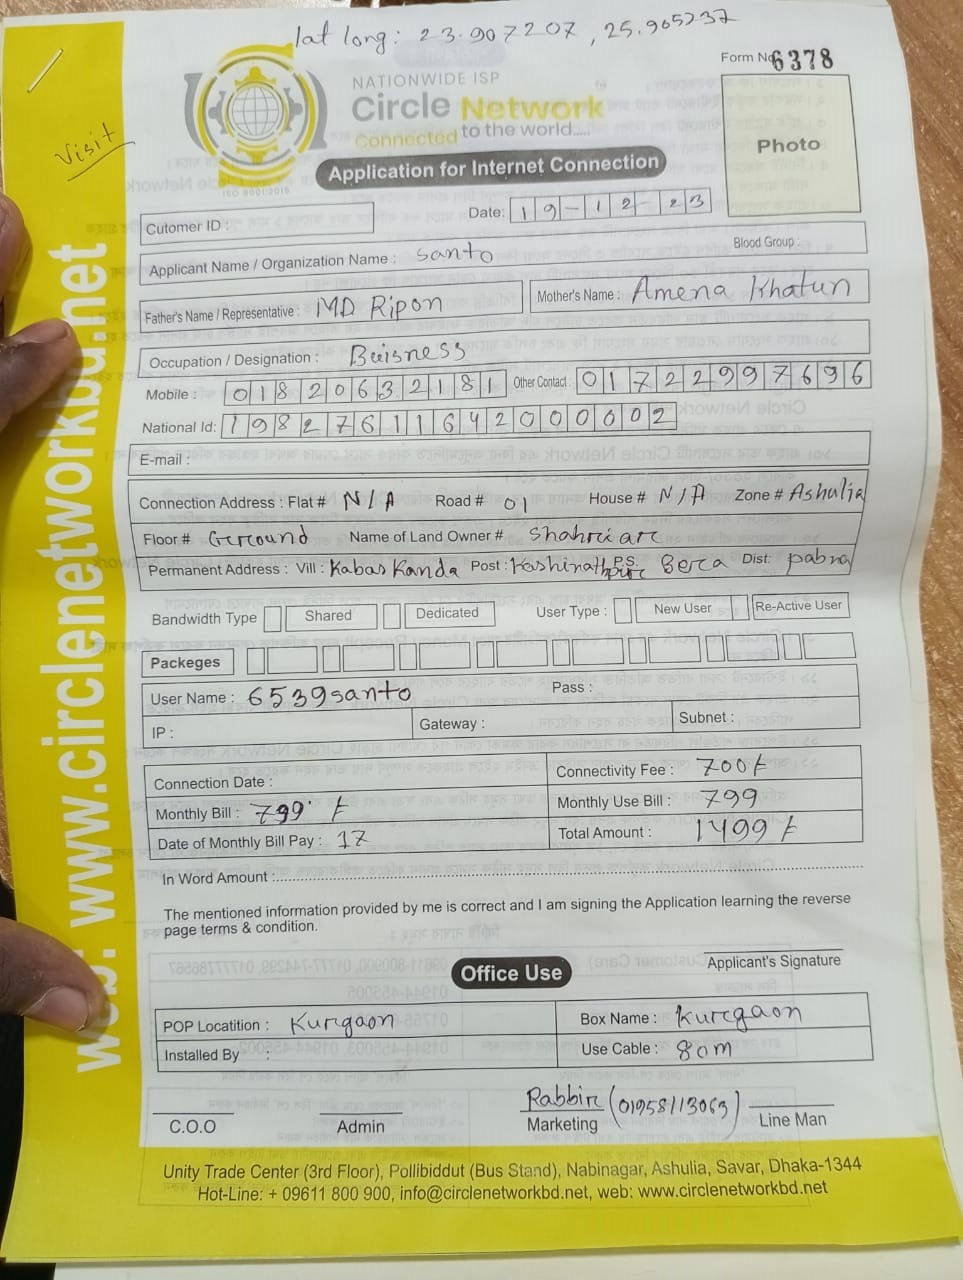 lat long: 23.907207, 25.905237
Form No 6378
NATIONWIDE ISP
Circle Network
Connected to the world.....
ISO 9001:2015
Visit
Photo
Application for Internet Connection
Cutomer ID :
Date: 19-12-23
Applicant Name / Organization Name : Santo
Blood Group :
Father's Name / Representative : MD Ripon
Mother's Name : Amena Khatun
Occupation / Designation : Buisness
Mobile : 01820632181 Other Contact : 01722997696
National Id: 19827611642000002
E-mail :
Connection Address : Flat # N/A Road # 01 House # N/A Zone # Ashulia
Floor # Ground Name of Land Owner # Shahriar
Permanent Address : Vill : Kabas Kanda Post : Kashinathpur P.S. Bera Dist: Pabna
Bandwidth Type Shared Dedicated User Type : New User Re-Active User
Packeges
User Name : 6539santo Pass :
IP : Gateway : Subnet :
Connection Date : Connectivity Fee : 700/-
Monthly Bill : 799 /- Monthly Use Bill : 799
Date of Monthly Bill Pay : 17 Total Amount : 1499 /-
In Word Amount :
The mentioned information provided by me is correct and I am signing the Application learning the reverse
page terms & condition.
Office Use
Applicant's Signature
POP Locatition : Kurgaon Box Name : Kurgaon
Installed By : Use Cable : 80m
Rabbir (01958113069)
C.O.O Admin Marketing Line Man
Unity Trade Center (3rd Floor), Pollibiddut (Bus Stand), Nabinagar, Ashulia, Savar, Dhaka-1344
Hot-Line: + 09611 800 900, info@circlenetworkbd.net, web: www.circlenetworkbd.net
web: www.circlenetworkbd.net